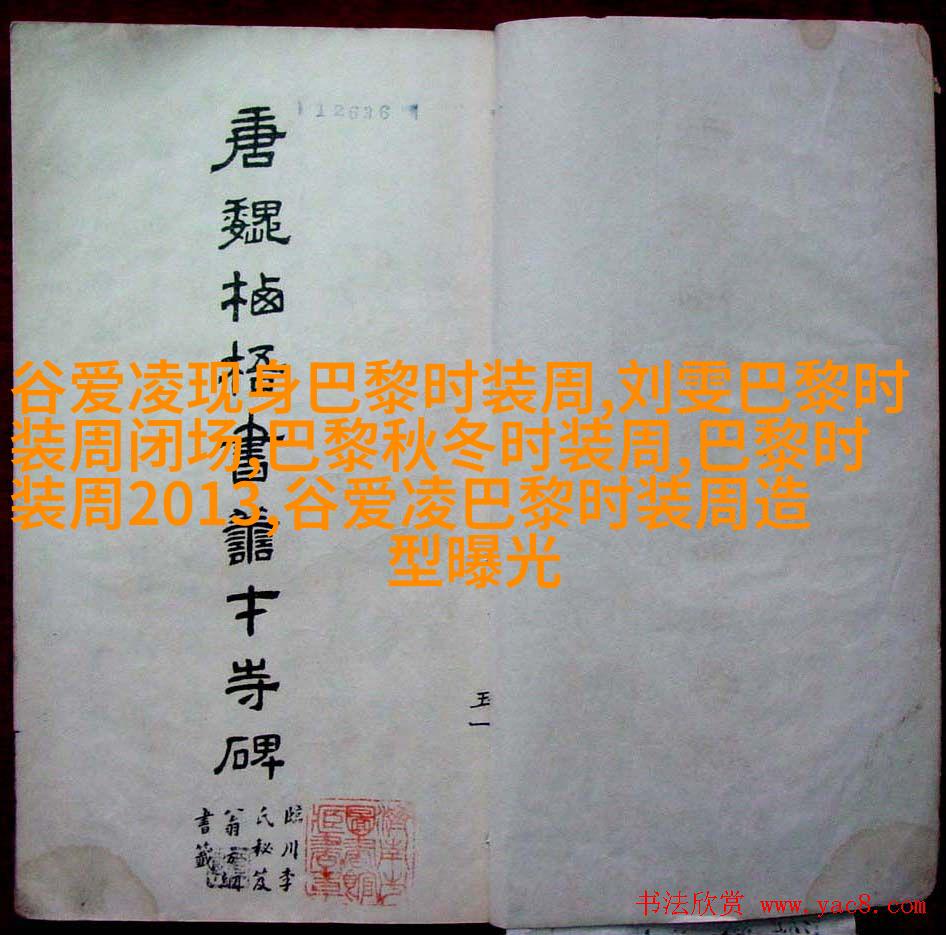 唐魏栖梧書善才寺碑
12636
谷爱凌现身巴黎时装周,刘雯巴黎时
装周闭场,巴黎秋冬时装周,巴黎时
装周2013,谷爱凌巴黎时装周造
型曝光
玉一
臨川李
氏秘笈
翁方綱
書籤
书法欣赏 www.yac8.com